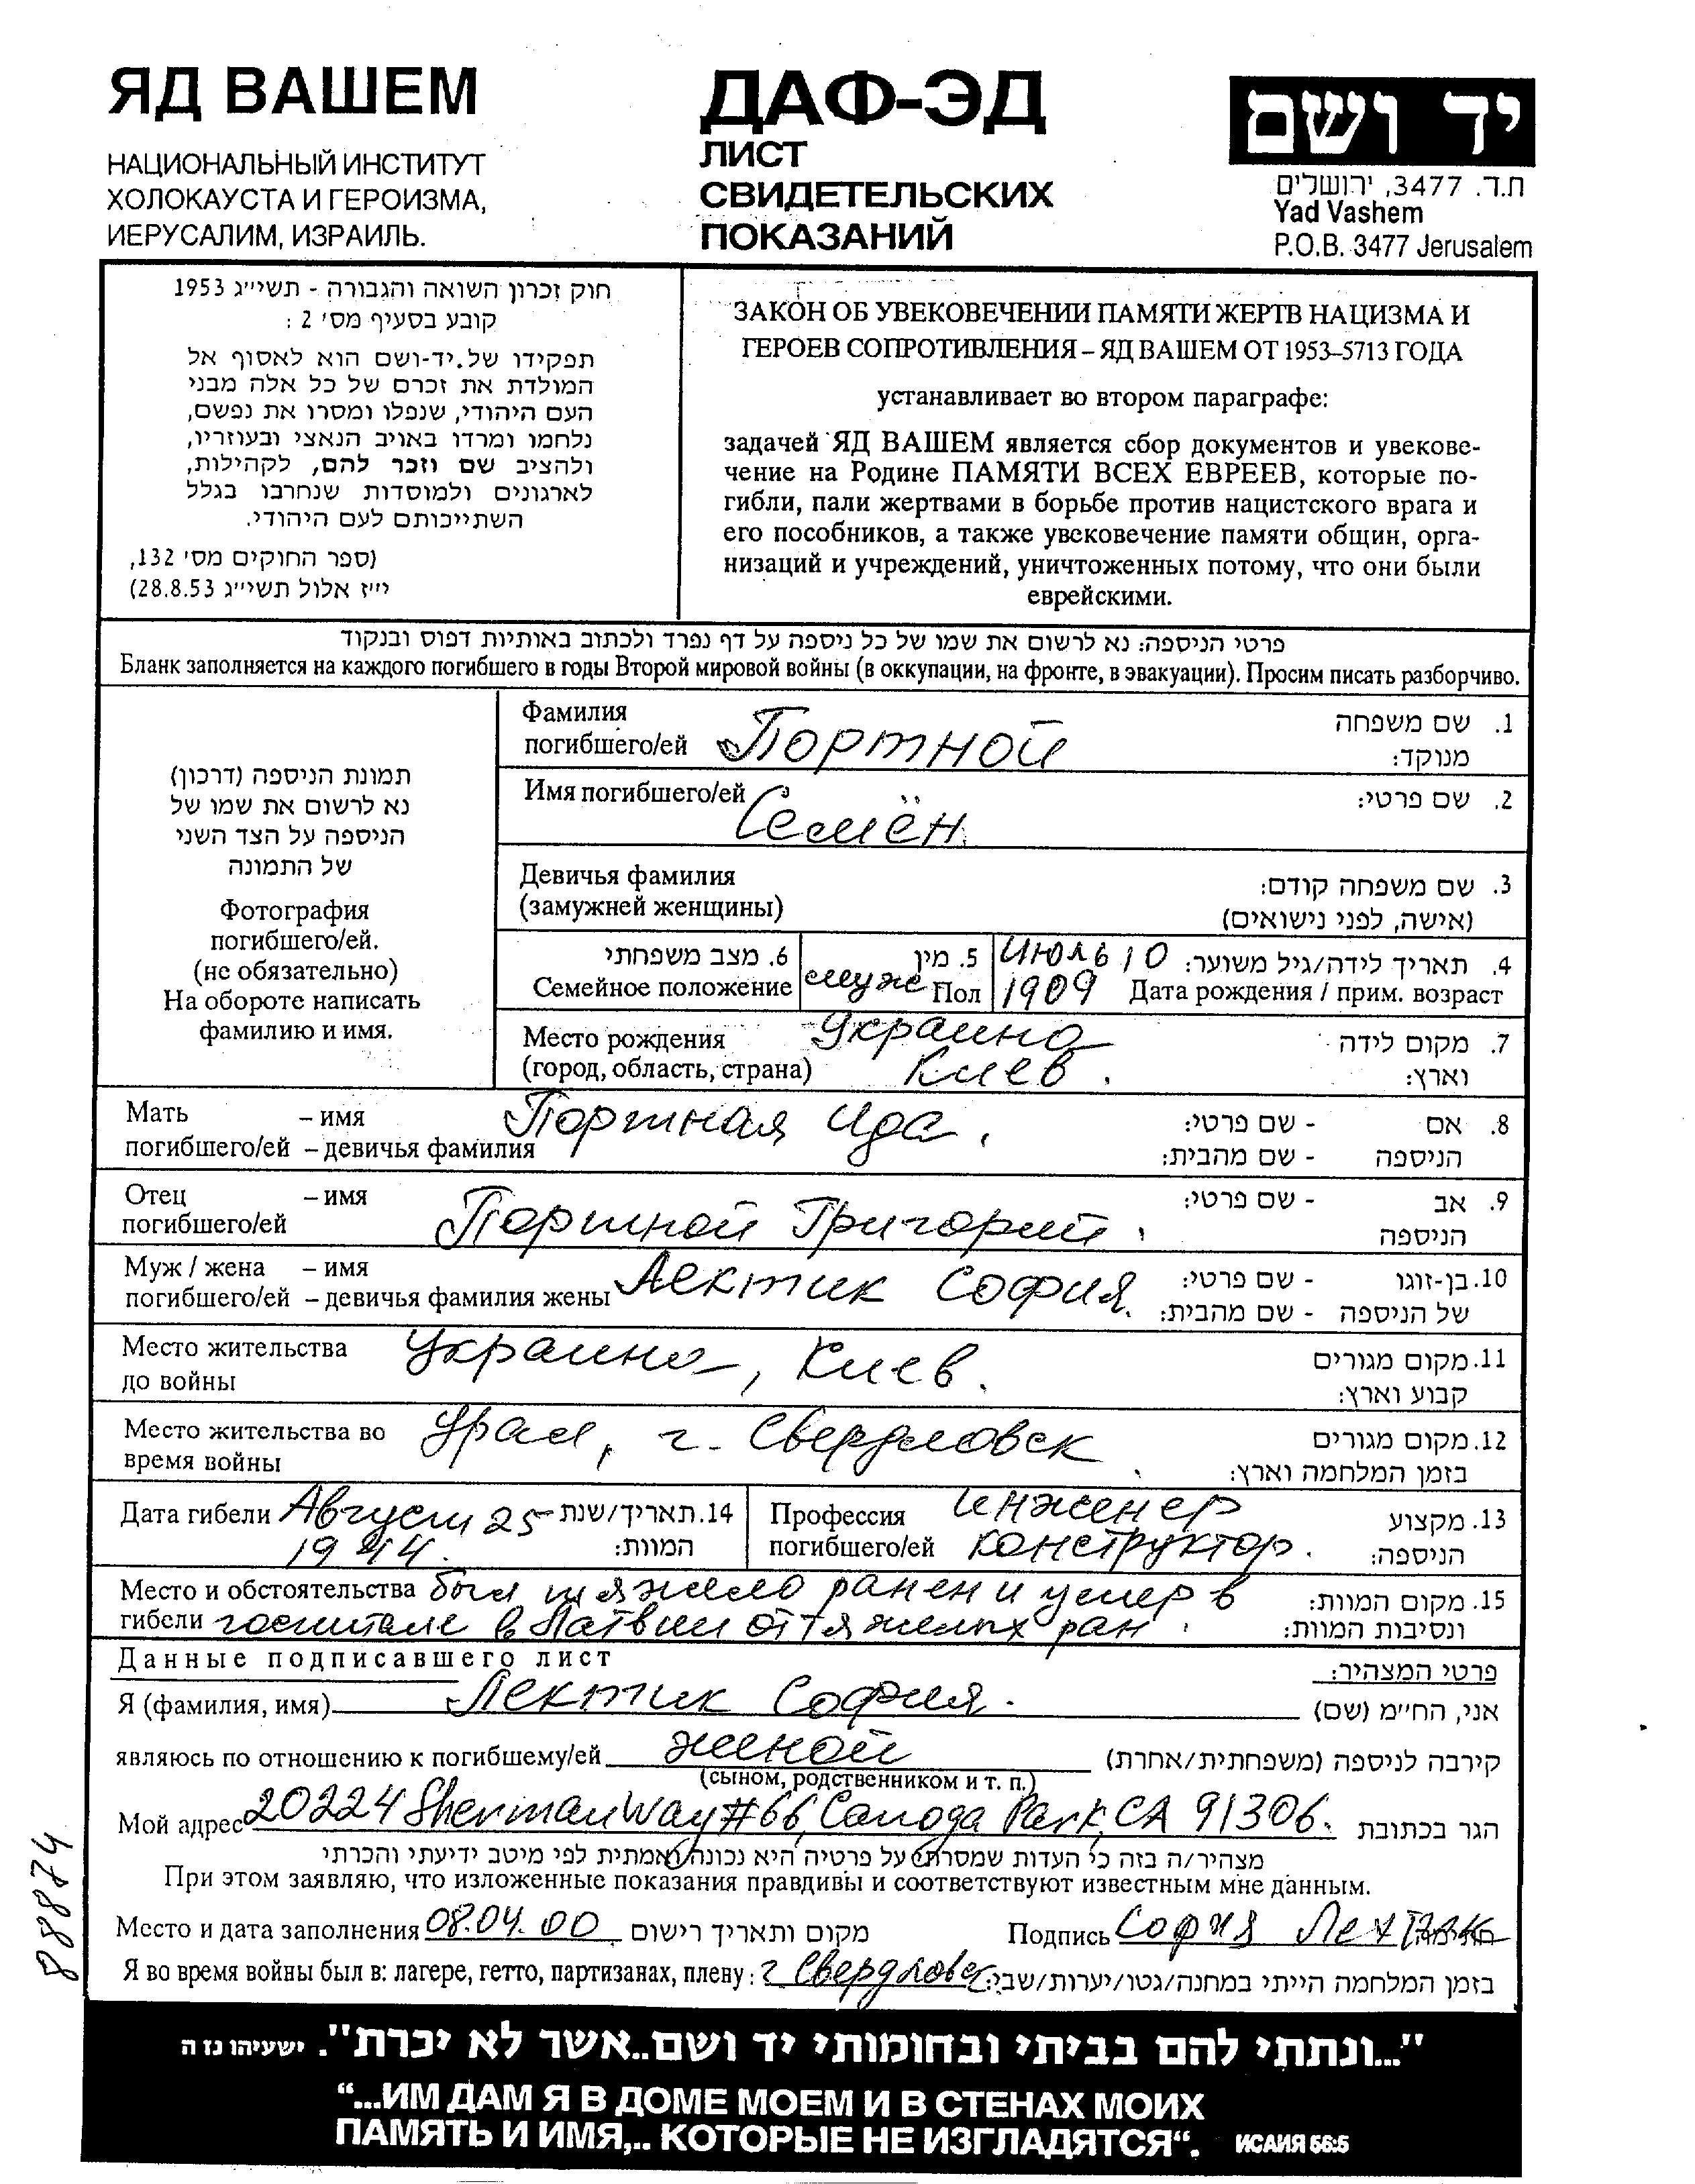 ЯД ВАШЕМ
НАЦИОНАЛЬНЫЙ ИНСТИТУТ
ХОЛОКАУСТА И ГЕРОИЗМА,
ИЕРУСАЛИМ, ИЗРАИЛЬ.
ДАФ-ЭД
ЛИСТ
СВИДЕТЕЛЬСКИХ
ПОКАЗАНИЙ
יד ושם
ת.ד. 3477, ירושלים
Yad Vashem
P.O.B. 3477 Jerusalem
חוק זכרון השואה והגבורה - תשי״ג 1953
קובע בסעיף מס׳ 2 :
תפקידו של יד-ושם הוא לאסוף אל
המולדת את זכרם של כל אלה מבני
העם היהודי, שנפלו ומסרו את נפשם,
נלחמו ומרדו באויב הנאצי ובעוזריו,
ולהציב שם וזכר להם, לקהילות,
לארגונים ולמוסדות שנחרבו בגלל
השתייכותם לעם היהודי.
(ספר החוקים מס׳ 132,
י״ז אלול תשי״ג 28.8.53)
ЗАКОН ОБ УВЕКОВЕЧЕНИИ ПАМЯТИ ЖЕРТВ НАЦИЗМА И
ГЕРОЕВ СОПРОТИВЛЕНИЯ – ЯД ВАШЕМ ОТ 1953–5713 ГОДА
устанавливает во втором параграфе:
задачей ЯД ВАШЕМ является сбор документов и увекове-
чение на Родине ПАМЯТИ ВСЕХ ЕВРЕЕВ, которые по-
гибли, пали жертвами в борьбе против нацистского врага и
его пособников, а также увековечение памяти общин, орга-
низаций и учреждений, уничтоженных потому, что они были
еврейскими.
פרטי הניספה: נא לרשום את שמו של כל ניספה על דף נפרד ולכתוב באותיות דפוס ובנקוד
Бланк заполняется на каждого погибшего в годы Второй мировой войны (в оккупации, на фронте, в эвакуации). Просим писать разборчиво.
תמונת הניספה (דרכון)
נא לרשום את שמו של
הניספה על הצד השני
של התמונה
Фотография
погибшего/ей.
(не обязательно)
На обороте написать
фамилию и имя.
Фамилия 1. שם משפחה
погибшего/ей Портной מנוקד:
Имя погибшего/ей Семён 2. שם פרטי:
Девичья фамилия 3. שם משפחה קודם:
(замужней женщины) (אישה, לפני נישואים)
6. מצב משפחתי 5. מין Июль 10 4. תאריך לידה/גיל משוער:
Семейное положение муж Пол 1909 Дата рождения / прим. возраст
Место рождения Украина 7. מקום לידה
(город, область, страна) Киев. וארץ:
Мать – имя Портная Ида. 8. אם - שם פרטי:
погибшего/ей – девичья фамилия הניספה - שם מהבית:
Отец – имя 9. אב - שם פרטי:
погибшего/ей Портной Григорий. הניספה
Муж / жена – имя Лектик София. 10. בן-זוגו - שם פרטי:
погибшего/ей – девичья фамилия жены של הניספה - שם מהבית:
Место жительства Украина, Киев. 11. מקום מגורים
до войны קבוע וארץ:
Место жительства во Урал, г. Свердловск 12. מקום מגורים
время войны בזמן המלחמה וארץ:
Дата гибели Август 25 14. תאריך/שנת Профессия инженер 13. מקצוע
1944. המוות: погибшего/ей конструктор. הניספה:
Место и обстоятельства был тяжело ранен и умер в 15. מקום המוות:
гибели госпитале в Латвии от тяжелых ран. ונסיבות המוות:
Данные подписавшего лист פרטי המצהיר:
Я (фамилия, имя) Лектик София. אני, הח״מ (שם)
являюсь по отношению к погибшему/ей женой קירבה לניספה (משפחתית/אחרת)
(сыном, родственником и т. п.)
Мой адрес 20224 Sherman Way #66, Canoga Park, CA 91306. הגר בכתובת
מצהיר/ה בזה כי העדות שמסרתי על פרטיה היא נכונה ואמתית לפי מיטב ידיעתי והכרתי
При этом заявляю, что изложенные показания правдивы и соответствуют известным мне данным.
Место и дата заполнения 08.04.00 מקום ותאריך רישום Подпись София Лектик
Я во время войны был в: лагере, гетто, партизанах, плену: г Свердловск בזמן המלחמה הייתי במחנה/גטו/יערות/שבי:
88874
"...ונתתי להם בביתי ובחומותי יד ושם..אשר לא יכרת". ישעיהו נז ה
“...ИМ ДАМ Я В ДОМЕ МОЕМ И В СТЕНАХ МОИХ
ПАМЯТЬ И ИМЯ,.. КОТОРЫЕ НЕ ИЗГЛАДЯТСЯ“. ИСАИЯ 56:5